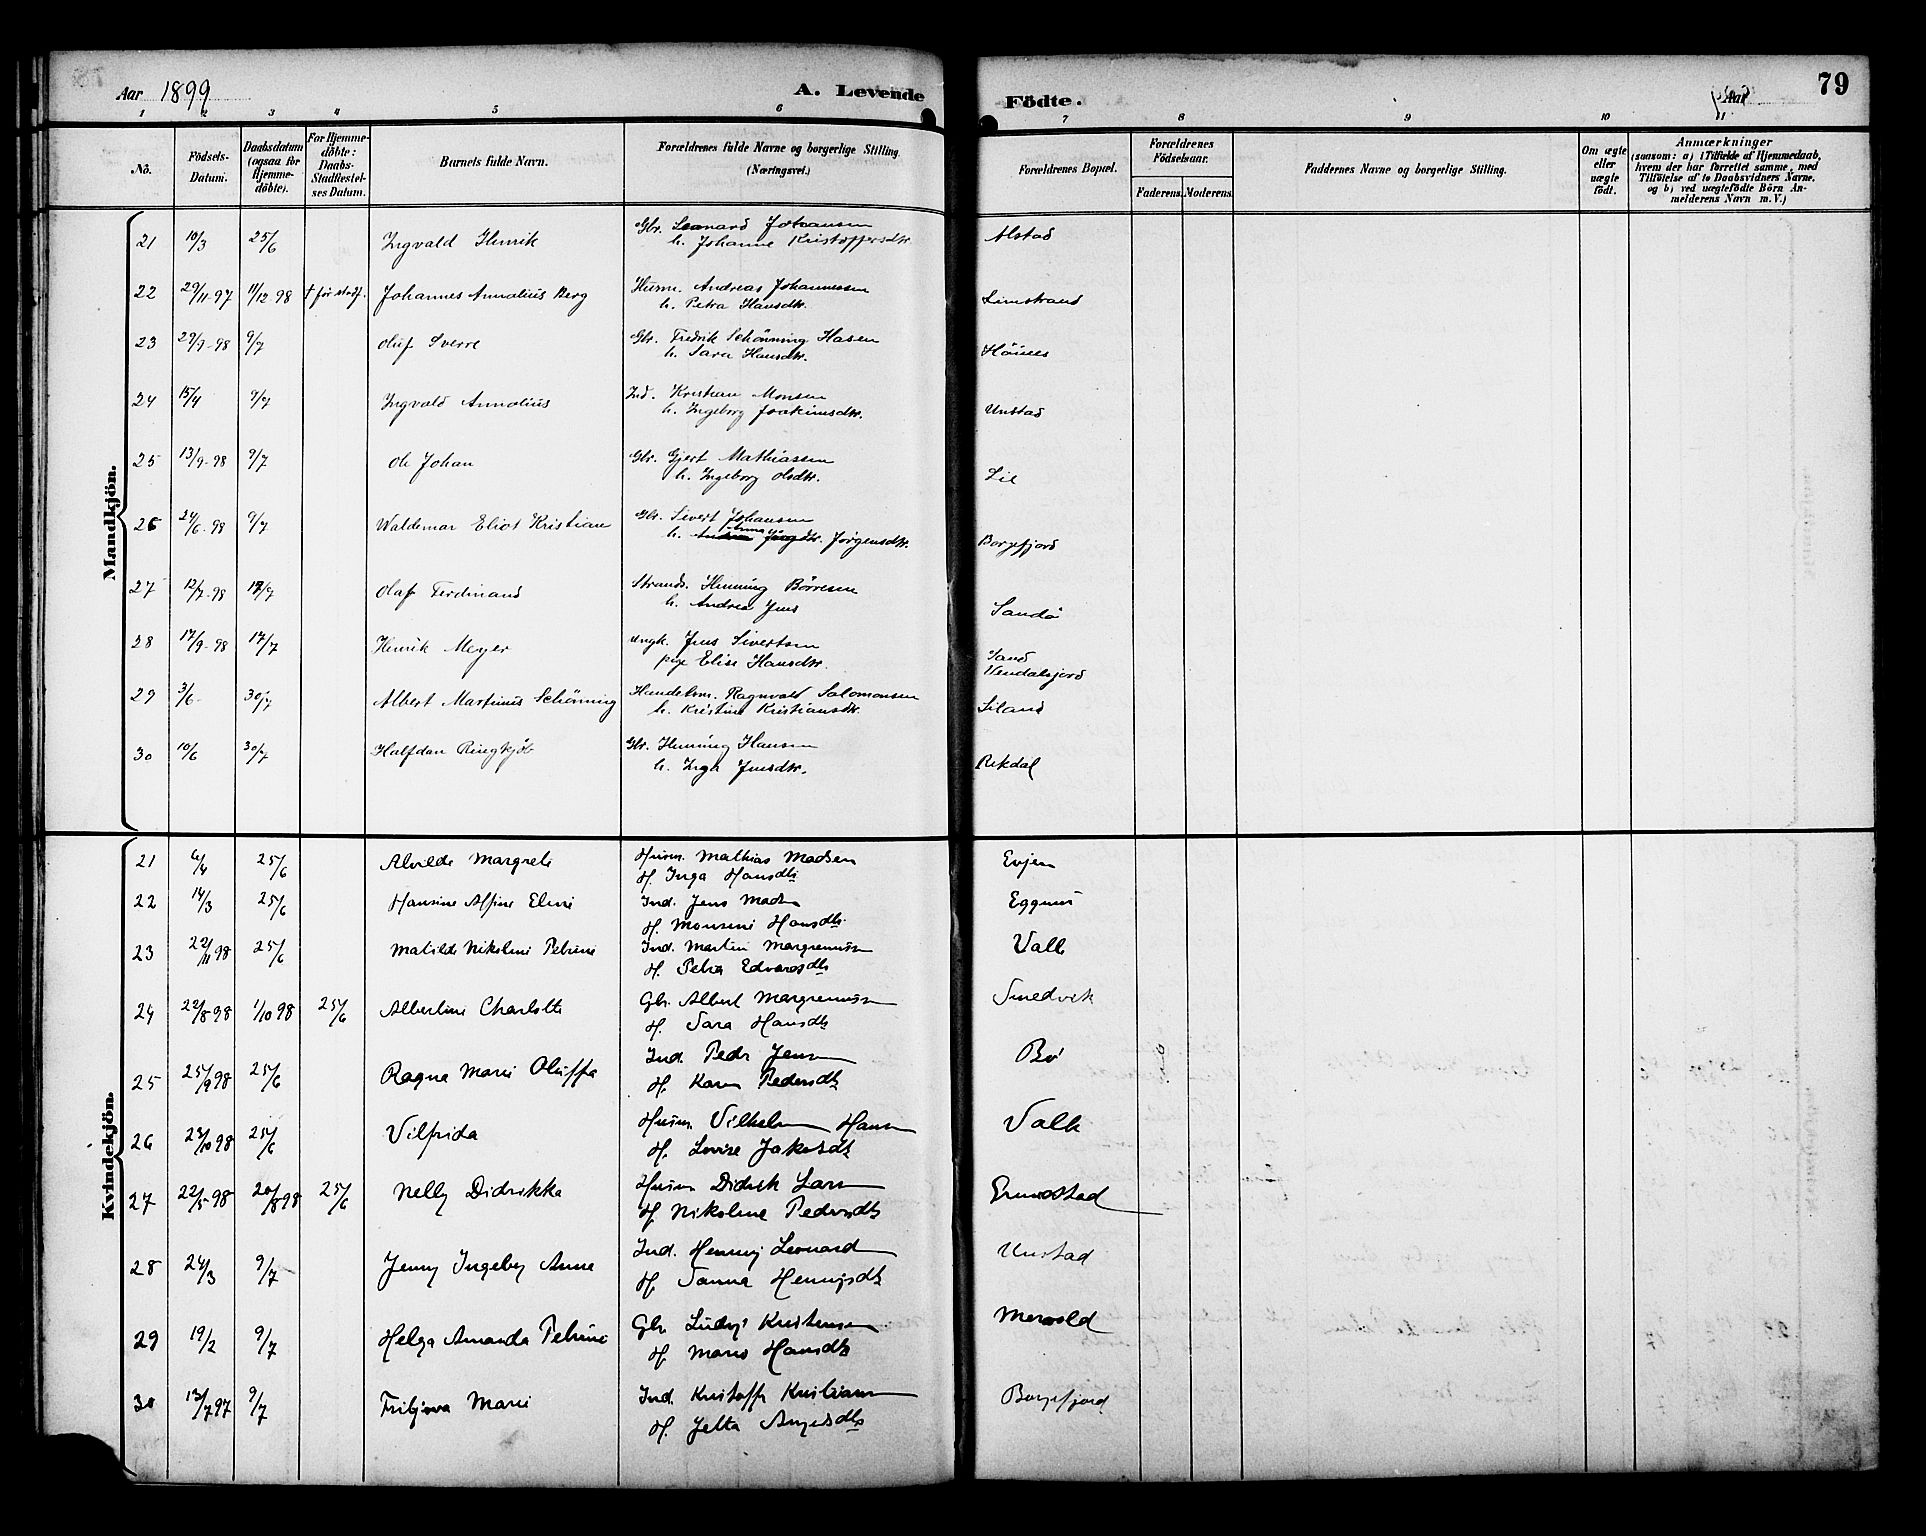 Aar 1899
A. Levende
1 2 3 4 5 6
No.
Födsels-Datum.
Daabsdatum (ogsaa for Hjemmedöbte).
For Hjemmedöbte: Daabs-Stadfæstelses Datum.
Barnets fulde Navn.
Forældrenes fulde Navne og borgerlige Stilling. (Næringsvei.)
Mandkjön.
21 10/3 25/6 Ingvald Henrik Gbr. Leonard Johansen
h. Johanne Kristoffersdtr.
22 29/11-97 11/12 98 † før stadf. Johannes Annolius Berg Husm. Andreas Johannessen
h. Petra Hansdtr.
23 29/9-98 9/7 Oluf Sverre Gbr. Fredrik Schönning Hasen
h. Sara Hansdtr.
24 15/4 9/7 Ingvald Annolius Ind. Kristian Monsen
h. Ingeborg Joakimsdtr.
25 13/9-98 9/7 Ole Johan Gbr. Gjert Mathiassen
h. Ingeborg Olsdtr.
26 24/6-98 9/7 Waldemar Eliot Kristian Gbr. Sivert Johansen
h. Anna Jörgensdtr.
27 12/7-98 17/7 Olaf Ferdinand Strands. Henning Börresen
h. Andrea Jens
28 17/9-98 17/7 Henrik Meyer Ungk. Jens Sivertsen
pige Elise Hansdtr.
29 3/6 30/7 Albert Martinus Schönning Handelsm. Ragnvald Salomonsen
h. Kristine Kristiansdtr.
30 10/6 30/7 Halfdan Ringkjøb Gbr. Henning Hansen
h. Inga Jensdtr.
Kvindekjön.
21 6/4 25/6 Alvilde Margrete Husm. Mathias Madsen
H. Inga Hansdtr
22 14/3 25/6 Hansine Alfine Eline Ind. Jens Madsen
H. Monsine Hansdtr.
23 22/11 98 25/6 Matilde Nikoline Petrine Ind. Martin Margrenussen
H. Petra Edvardsdtr
24 22/8 98 1/10 98 25/6 Albertine Charlotte Gbr. Albert Margrenussen
H. Sara Hansdtr
25 25/9 98 25/6 Ragna Marie Oluffa Ind. Peder Jensen
H. Karen Pedersdtr
26 23/10 98 25/6 Vilfrida Husm. Vilhelm Hansen
H. Lovise Jakobsdtr
27 22/5-98 20/8 98 25/6 Nelly Didrikka Husm Didrik Larsen
H. Nikoline Pedersdtr
28 24/3 9/7 Jenny Ingeborg Anna Ind. Henning Leonardsen
H. Sanna Henningsdtr
29 19/2 9/7 Helga Amanda Petrine Gbr Ludvig Kristensen
H. Maren Hansdtr
30 13/7 97 9/7 Fritjova Marie Ind. Kristoffer Kristiansen
H. Jetta
79
Födte.
Aar
7 8 9 10 11
Forældrenes Bopæl.
Forældrenes Födselsaar.
Faderens. Moderens.
Faddernes Navne og borgerlige Stilling.
Om ægte eller uægte födt.
Anmærkninger
(saasom: a) i Tilfælde af Hjemmedaab, hvem der har forrettet samme, med Tilföielse af to Daabsvidners Navne, og b) ved uægtefödte Börn Anmelderens Navn m.V.)
Alstad
Limstrand
Höines
Unstad
Lie
Borgefjord
Sandö
Sand
Vendalsfjord
Liland
Rekdal
Evjen
Eggum
Valle
Smedvik
Bö
Valle
Grimstad
Unstad
Mervold
Borgefjord